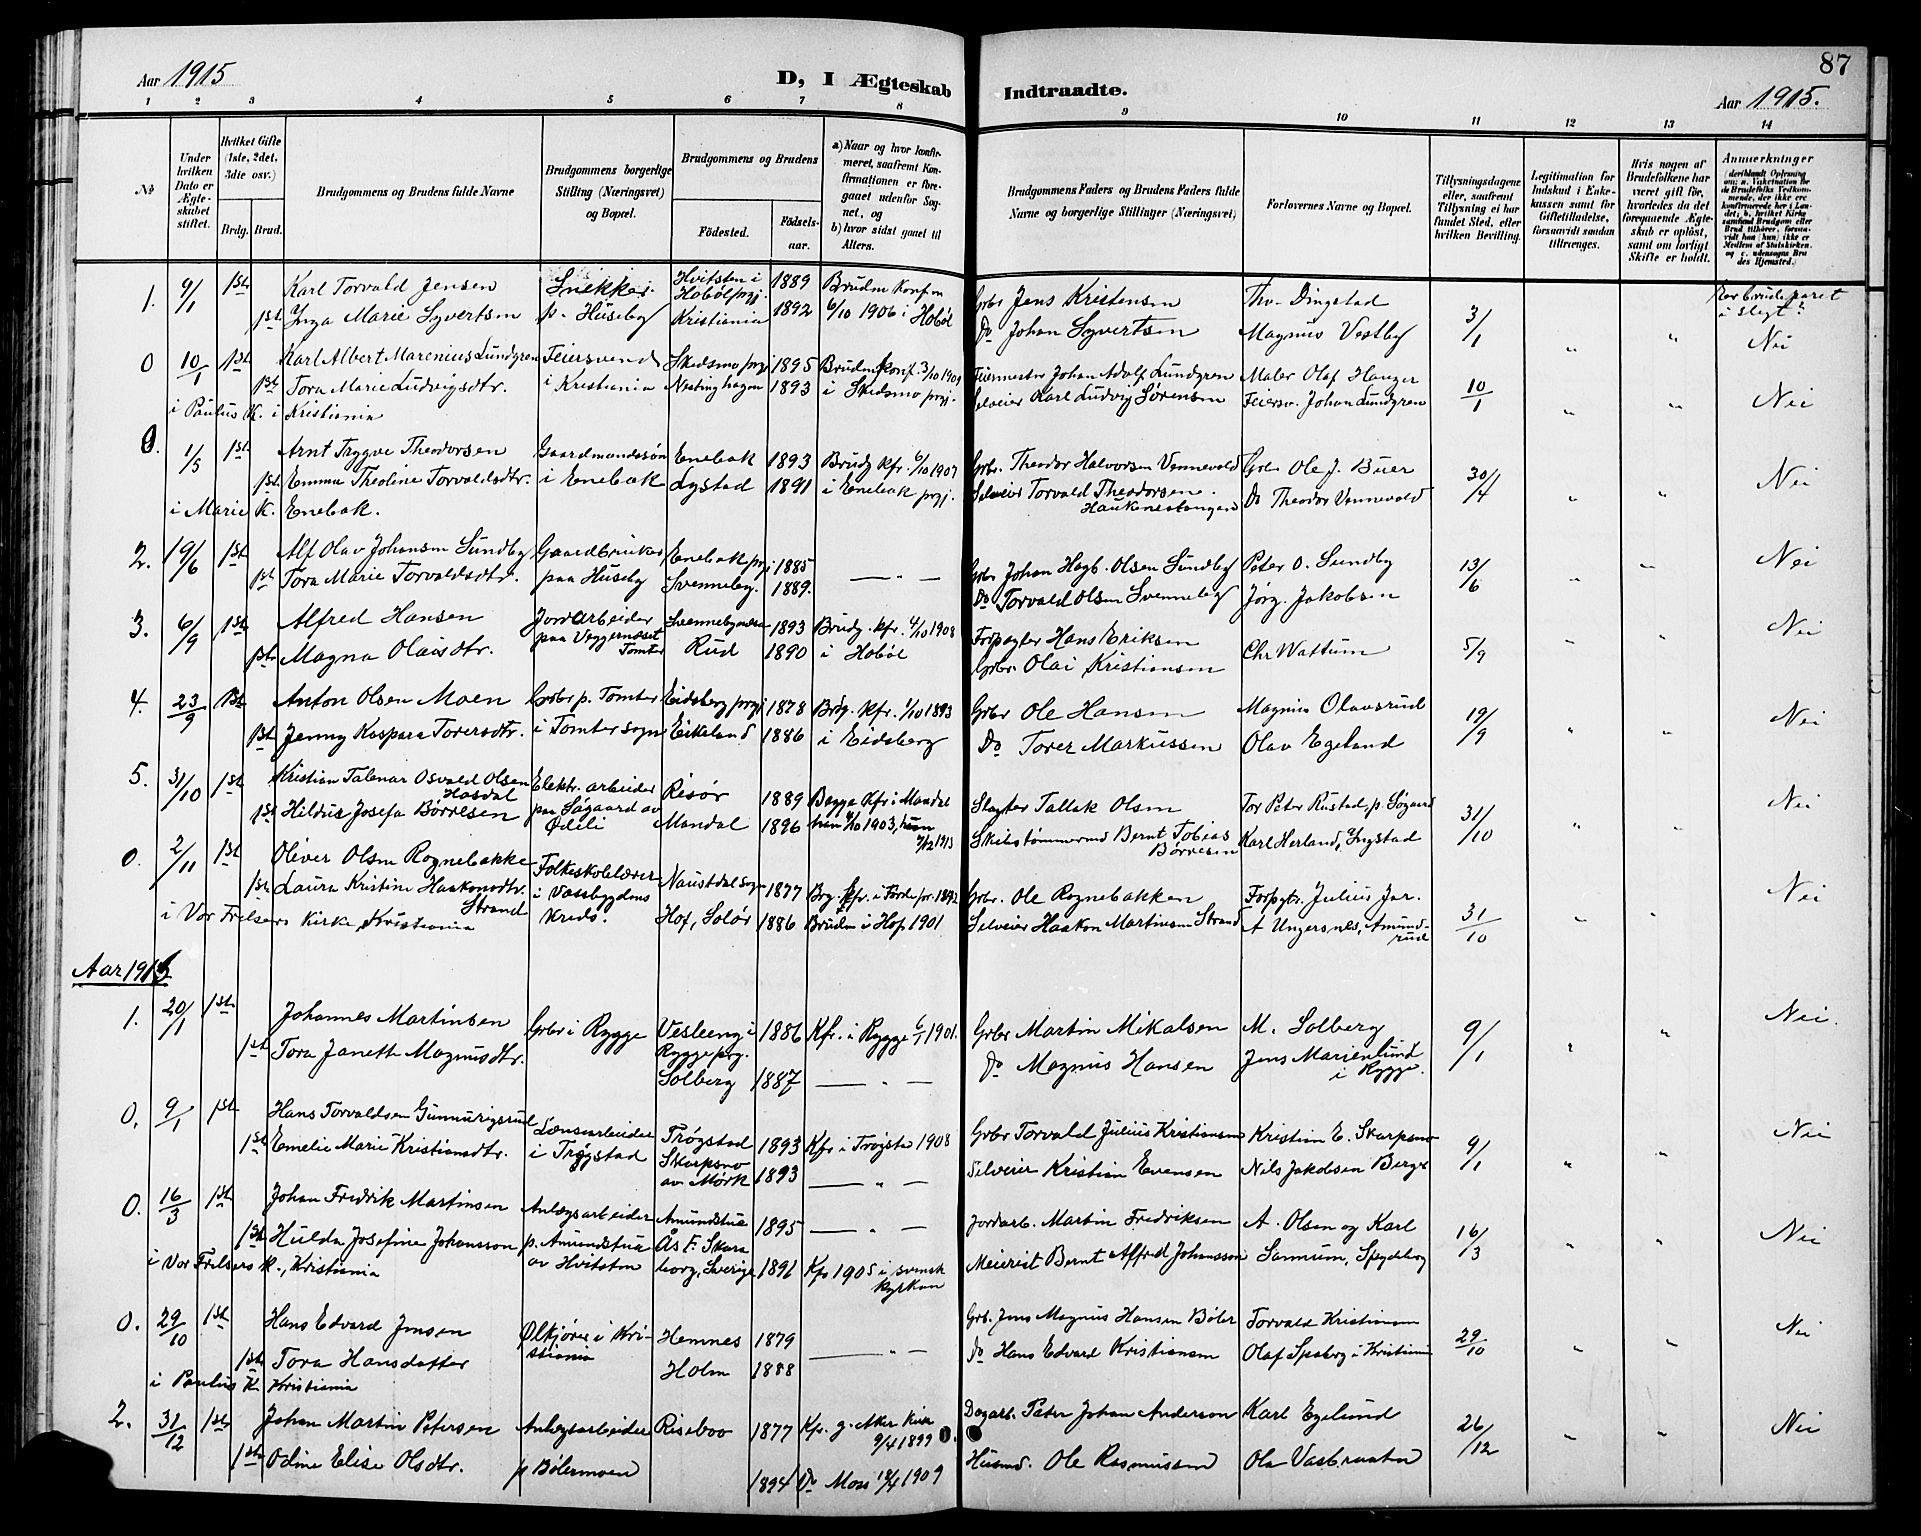 87
Aar 1915
D, I Ægteskab Indtraadte.
Aar 1915.
1 2 3 4 5 6 7 8 9 10 11 12 13 14
No
Under hvilken Dato er Ægteskabet stiftet.
Hvilket Gifte (1ste, 2det, 3dte osv.)
Brdg. Brud.
Brudgommens og Brudens fulde Navne
Brudgommens borgerlige Stilling (Næringsvei) og Bopæl.
Brudgommens og Brudens
Födested.
Födselsaar.
a) Naar og hvor konfirmeret, saafremt Konfirmationen er foregaaet udenfor Sognet, og
b) hvor sidst gaaet til Alters.
Brudgommens Faders og Brudens Faders fulde Navne og borgerlige Stillinger (Næringsvei)
Forlovernes Navne og Bopæl.
Tillysningsdagene eller, saafremt Tillysning ei har fundet Sted, efter hvilken Bevilling.
Legitimation for Indskud i Enkekassen samt for Giftetilladelse, forsaavidt saadan tiltrænges.
Hvis nogen af Brudefolkene har været gift för, hvorledes da det foregaaende Ægteskab er oplöst, samt om lovligt Skifte er holdt.
Anmærkninger
1. 9/1 1ste Karl Torvald Jensen Snekker Hvitsten i Hobøl prj. 1889 Brudm konf m Gbr Jens Kristensen Tho. Dingstad 3/1 Er brudeparet i slegt?
1st Inga Marie Syvertsen p. Huseby Kristiania 1892 6/10 1906 i Hobøl Do Johan Syvertsen Magnus Vestby " " Nei
0 10/1 1ste Karl Albert Marenius Lundgren Feiersvend Skedsmo prj 1895 Brudm konf. 3/10 1909 Feiermester Johan Adolf Lundgren Maler Olaf Hanger 10/1 Nei
1st Tora Marie Ludvigsdtr. i Kristiania Nestinghagen 1893 i Skedsmo prj. Selveier Karl Ludvig Sørensen Feiersv. Johan Lundgren " "
i Paulus K. i Kristiania
0. 1/5 1st Arnt Trygve Theodorsen Gaardmandssøn Enebak 1893 Brudg kfr. 6/10 1907 Gbr. Theodor Halvorsen Vennevold Gbr Ole J. Buer 30/4 Nei
1st Emma Theoline Torvaldsdtr. i Enebak Lystad 1891 i Enebak prj. Selveier Torvald Theodorsen Haukenestangen Do Theodor Vennevold " "
i Marie K. Enebak.
2. 19/6 1st Alf Olav Johansen Sundby Gaardbruker Enebak prj 1885 — " — Gbr Johan Hagb. Olsen Sundby Peter O. Sundby 13/6 Nei
1st Tora Marie Torvaldsdtr. paa Huseby Svenneby. 1889. Do Torvald Olsen Svenneby Jørg. Jakobsen " "
3. 6/9 1st Alfred Hansen Jordarbeider 1893 Brudg. kfr. 4/10 1908 Forpagter Hans Eriksen Chr Wattum 5/9 Nei
1st Magna Olaisdtr. paa Veggernæset Tomter Rud 1890 i Hobøl Gbr. Olai Kristiansen " "
4. 23/9 1st Anton Olsen Moen Gbr p. Tomter Eidsberg prj 1878 Brdg. kfr. 1/10 1893 Gbr Ole Hansen Magnus Olavsrud 19/9 Nei
1st Jenny Kaspara Torersdtr. i Tomter sogn Eikeland 1886 i Eidsberg Do Torer Markussen Olav Egeland " "
5. 31/10 1st Kristian Talenar Osvald Olsen Hasdal Elektr. arbeider Risør 1889 Begge Kfr i Mandal Slagter Tallak Olsen Tor Peter Rustad p. Søgaard 31/10 Nei
1st Hildus Josefa Børresen paa Søgaard av Ødeli Mandal 1896 han 4/10 1903, hun 7/12 1913 Skibstømmermd Bernt Tobias Børresen Karl Herland, Yngstad " "
0. 2/11 1st Oliver Olsen Rognebakke Folkeskolelærer Naustdal sogn 1877 Brg. kfr. i Førde pr. 1892 Gbr. Ole Rognebakken Forpgtr. Julius Jar. 31/10 Nei
1st Laura Kristine Haakonsdtr. Strand i Vassbygdens kreds. Hof, Solør 1886 Brudm i Hof 1901 Selveier Haakon Martinsen Strand A Ungersnes, Amundrud " "
i Vor Frelsers Kirke, Kristiania
Aar 1916
1. 20/1 1st Johannes Martinsen Gbr i Rygge Vesleeng i Rygge prg. 1886 Kfr. i Rygge 6/1 1901. Gbr Martin Mikalsen M. Solberg 9/1 Nei.
1st Tora Janette Magnusdtr. Solberg 1887 — " — Do Magnus Hansen Jens Marienlund i Rygge. " "
0. 9/1 1st Hans Torvaldsen Gunnurigsrud Lænsearbeider Trøgstad 1893 Kfr i Trøgsta 1908 Gbr Torvald Julius Kristiansen Kristian E. Skarpsno 9/1 Nei
1st Emelie Marie Kristiansdtr. i Trøgstad Skarpsno av Mørk 1893 — " — Selveier Kristian Evensen Nils Jakobsen Berge " "
0. 16/3 1st Johan Fredrik Martinsen Anlægsarbeider Amundstua 1895 — " — Jordarb. Martin Fredriksen A. Olsen og Karl 16/3 Nei
1st Hulda Josefine Johansson p. Amundstua av Hvitsten Ås F. Skaraborg, Sverige 1891 Kfr 1905 i svensk kyrkan Meierist Bernt Alfred Johansson Sannum, Spydeberg " "
i Vor Frelsers K., Kristiania
0. 29/10 1st Hans Edvard Jensen Ølkjører i Kristiania Hemnes 1879 — " — Grb. Jens Magnus Hansen Bøler Torvald Kristiansen 29/10 Nei
1st Tora Hansdatter Holm 1888 Do Hans Edvard Kristiansen Olaf Spaberg i Kristiania " "
i Paulus K Kristiania
2. 31/12 1st Johan Martin Petersen Anlægsarbeider Riseboo 1877 Kfr. g. Aker Kirke 9/4 1899 Dagarb. Peter Johan Anderson Karl Egelund 26/12 Nei
1st Odine Elise Olsdtr. p Bølermoen 1894 Do Moss 18/4 1909 Husmd. Ole Rasmussen Ola Vasbraaten " "